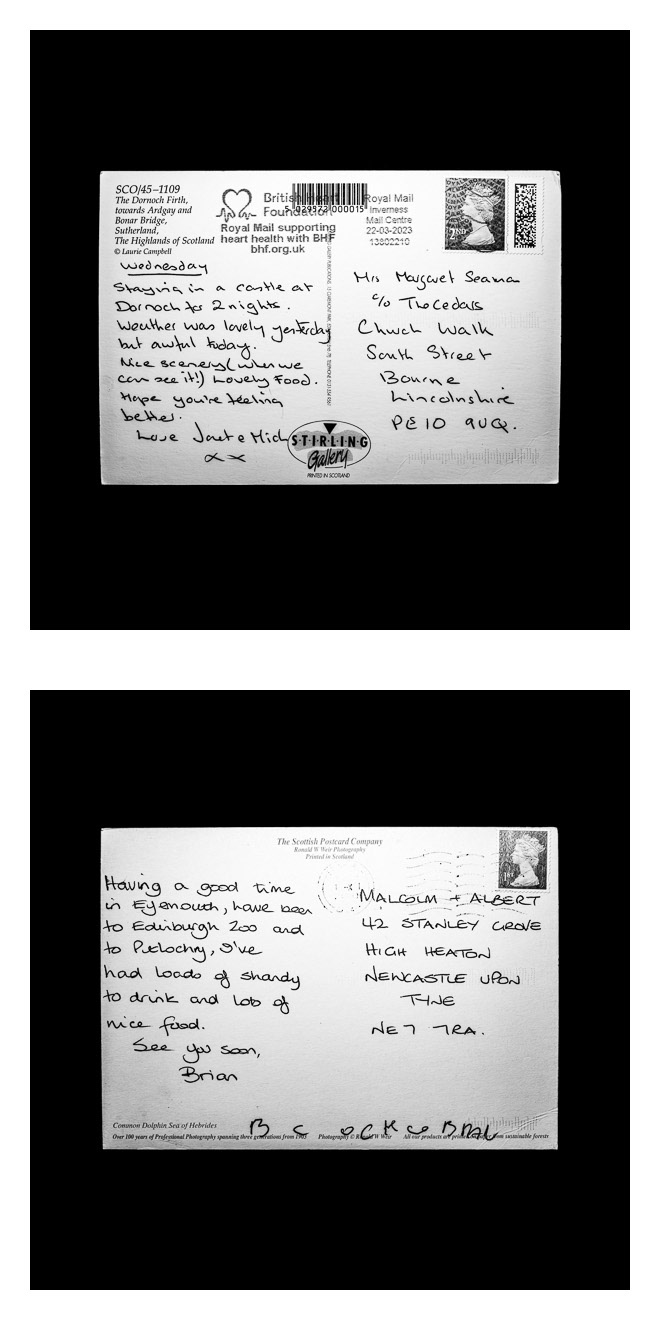 SCO/45–1109
The Dornoch Firth,
towards Ardgay and
Bonar Bridge,
Sutherland,
The Highlands of Scotland
© Laurie Campbell
British Heart
Foundation
Royal Mail supporting
heart health with BHF
bhf.org.uk
5 029572 000015
Royal Mail
Inverness
Mail Centre
22-03-2023
13802210
2ND
Wednesday
Staying in a castle at
Dornoch for 2 nights.
Weather was lovely yesterday
but awful today.
Nice scenery (when we
can see it!) Lovely Food.
Hope you're feeling
better.
Love Janet & Mich
xx
Mrs Margaret Seaman
c/o The Cedars
Church Walk
South Street
Bourne
Lincolnshire
PE10 9UQ.
S·T·I·R·L·I·N·G
Gallery
PRINTED IN SCOTLAND
The Scottish Postcard Company
Ronald W Weir Photography
Printed in Scotland
1ST
Having a good time
in Eyemouth, have been
to Edinburgh Zoo and
to Pitlochry, I've
had loads of shandy
to drink and lots of
nice food.
See you soon,
Brian
MALCOLM + ALBERT
42 STANLEY GROVE
HIGH HEATON
NEWCASTLE UPON
TYNE
NE7 7RA.
Common Dolphin Sea of Hebrides
Over 100 years of Professional Photography spanning three generations from
Photography © Ronald W Weir
All our products are printed from sustainable forests